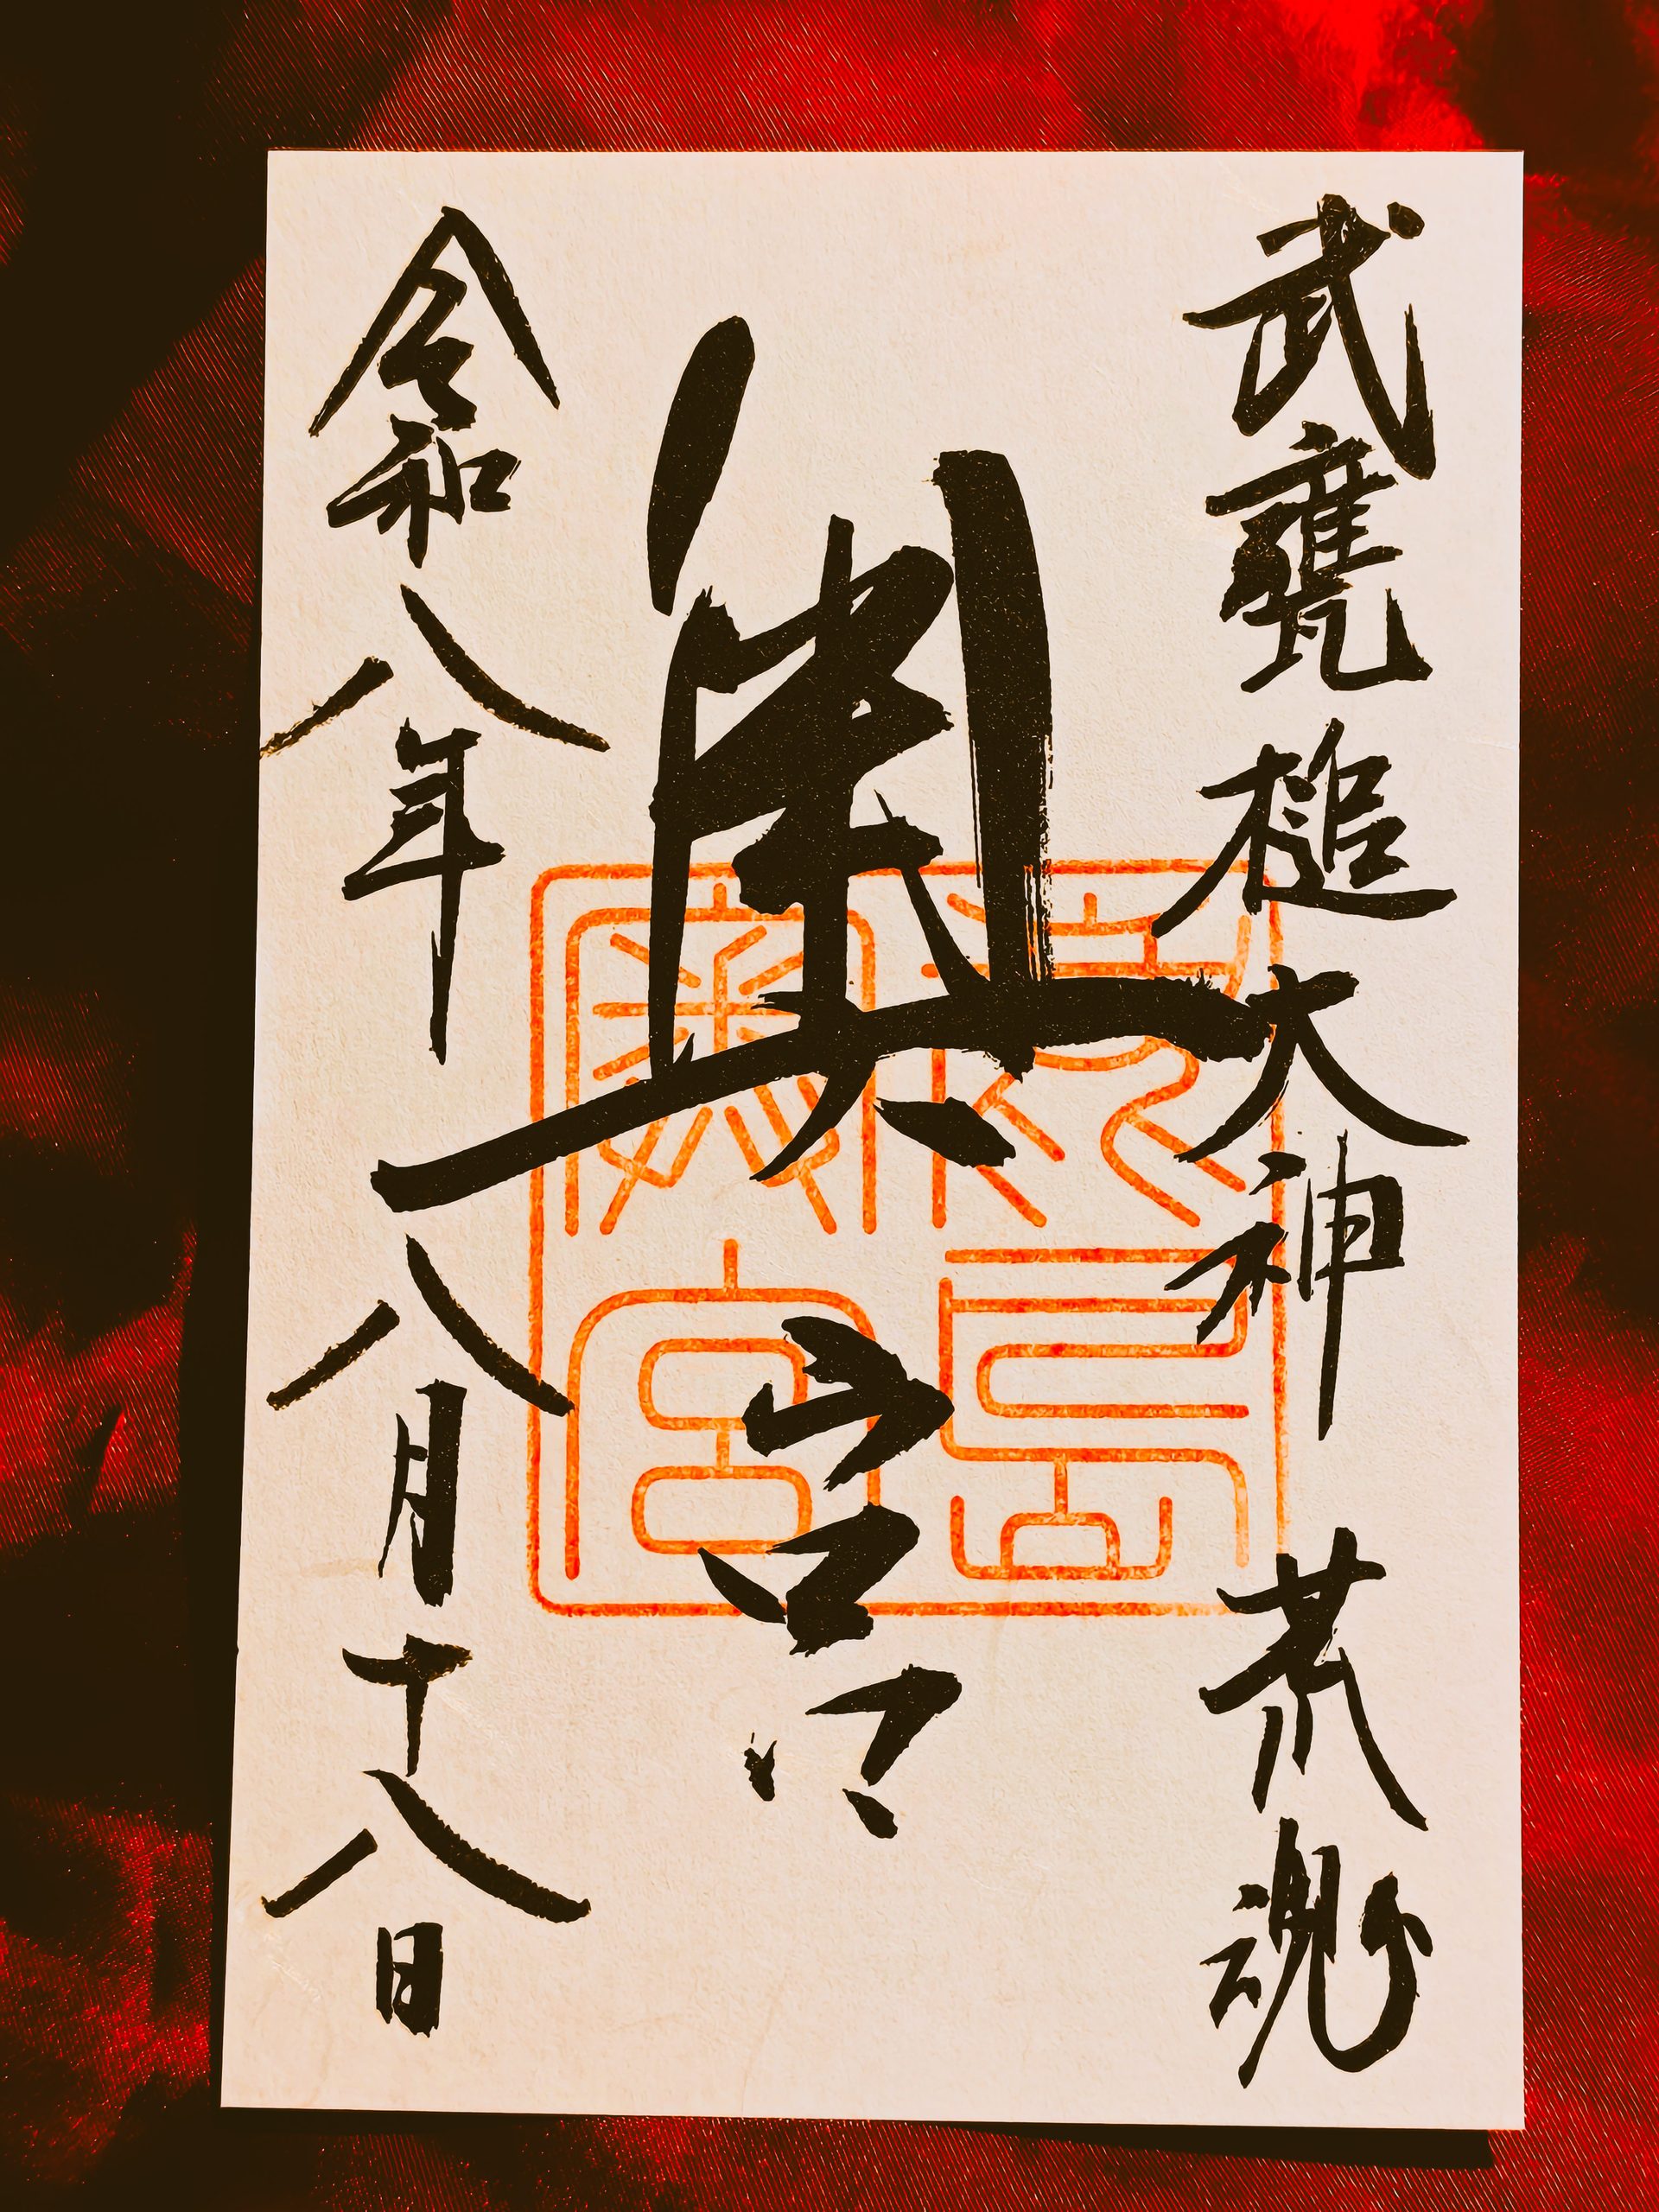 武甕槌大神 荒魂
奥宮
鹿島奥宮
令和八年八月十八日